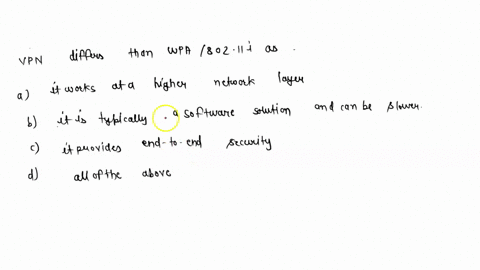 VPN differs than WPA /802.11i as .
a) it works at a higher network layer
b) it is typically a software solution and can be slower.
c) it provides end-to-end security
d) all of the above